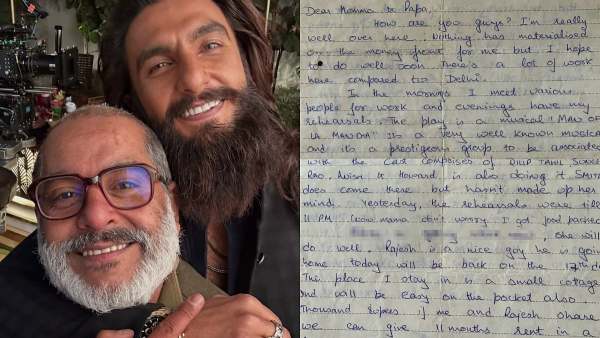 Dear Mamma & Papa,
How are you guys? I'm really
well over here. Nothing has materialised
on the money front for me but I hope
to do well soon. There's a lot of work
here compared to Delhi.
In the mornings I meet various
people for work and evenings have my
rehearsals. The play is a musical "MAN OF
LA MANCHA" its a very well known musical
and its a prestigeous group to be associated
with the cast comprises of DILIP TAHIL
RAO, & Howard is also doing it.
does come there but hasn't made up her
mind. Yesterday, the rehearsals were till
11 PM. (now mama don't worry I got food packed
, she will
do well. Rajesh is a nice guy he is going
home today will be back on the 17th
The place I stay in is a small cottage
and will be easy on the pocket also.
Thousand Rupees if me and Rajesh share
we can give 11 months rent in a